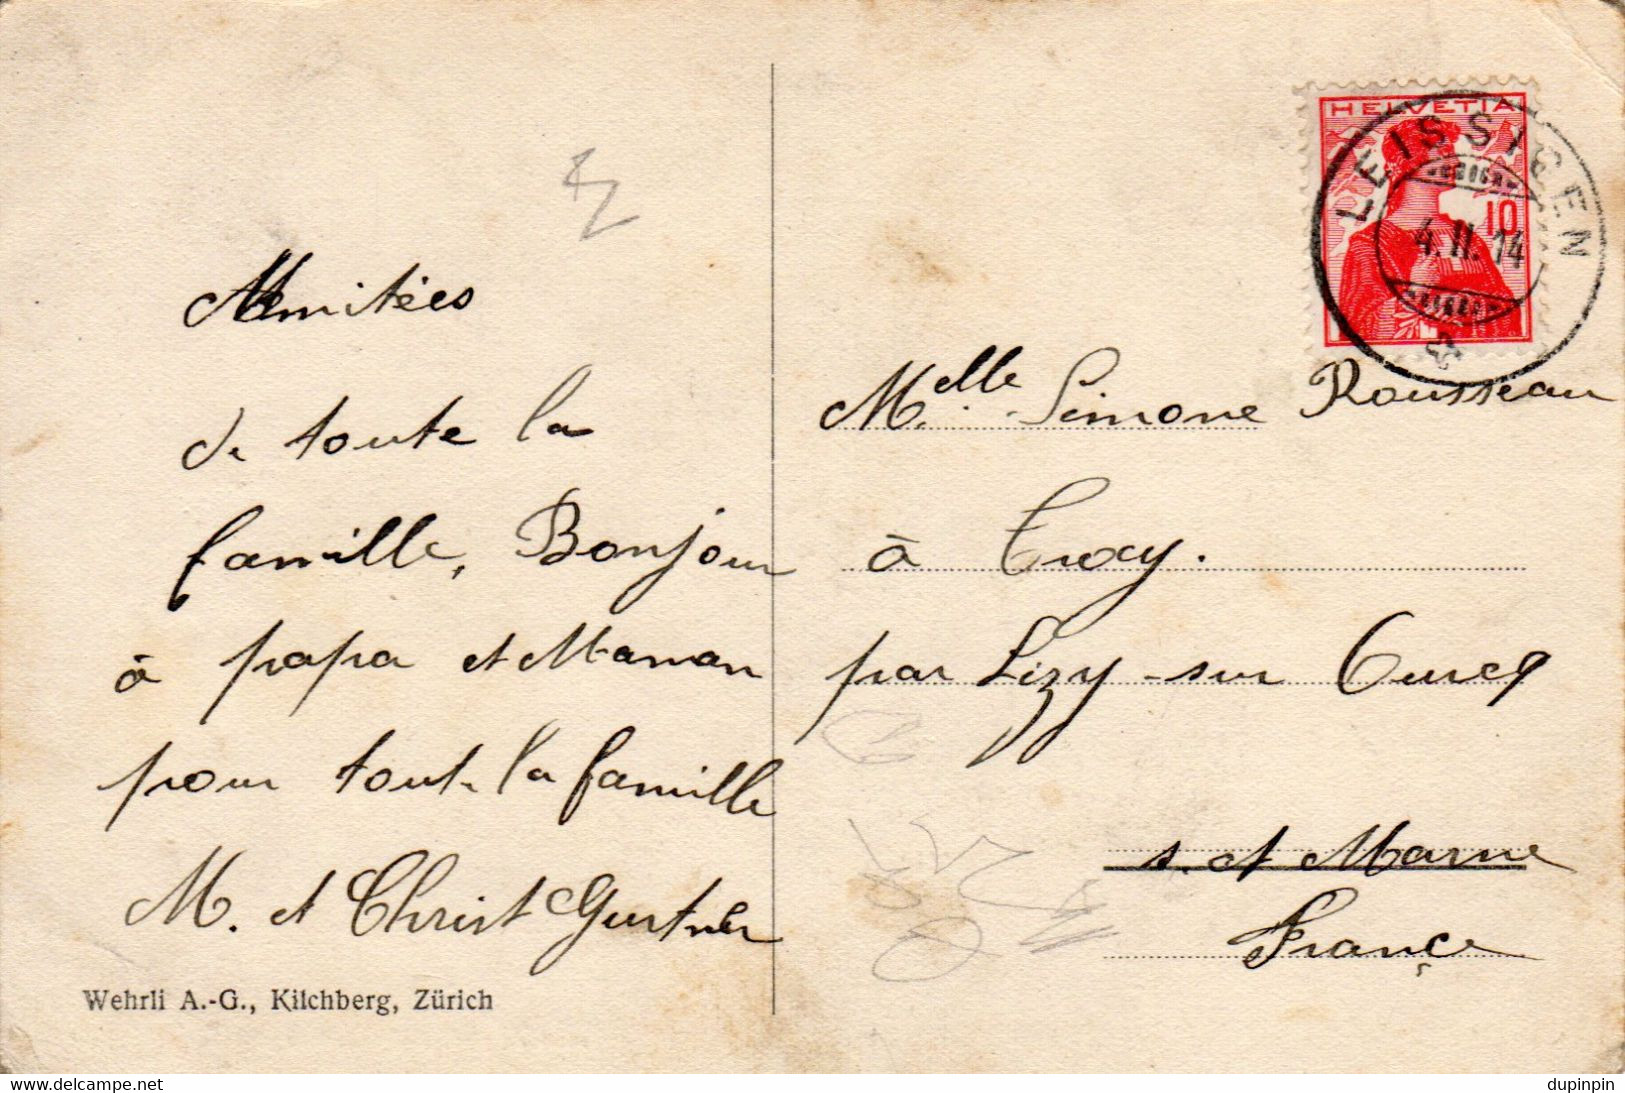 Amitiées
de toute la
famille, Bonjour
à papa et Maman
pour tout la famille
M. et Christ Gurtner
Wehrli A.-G., Kilchberg, Zürich
HELVETIA
10
LEISSIGEN
4.II.14
Melle Simone Rousseau
à Croÿ.
par Lizy-sur Ourcq
s. et Marne
France
www.delcampe.net
dupinpin